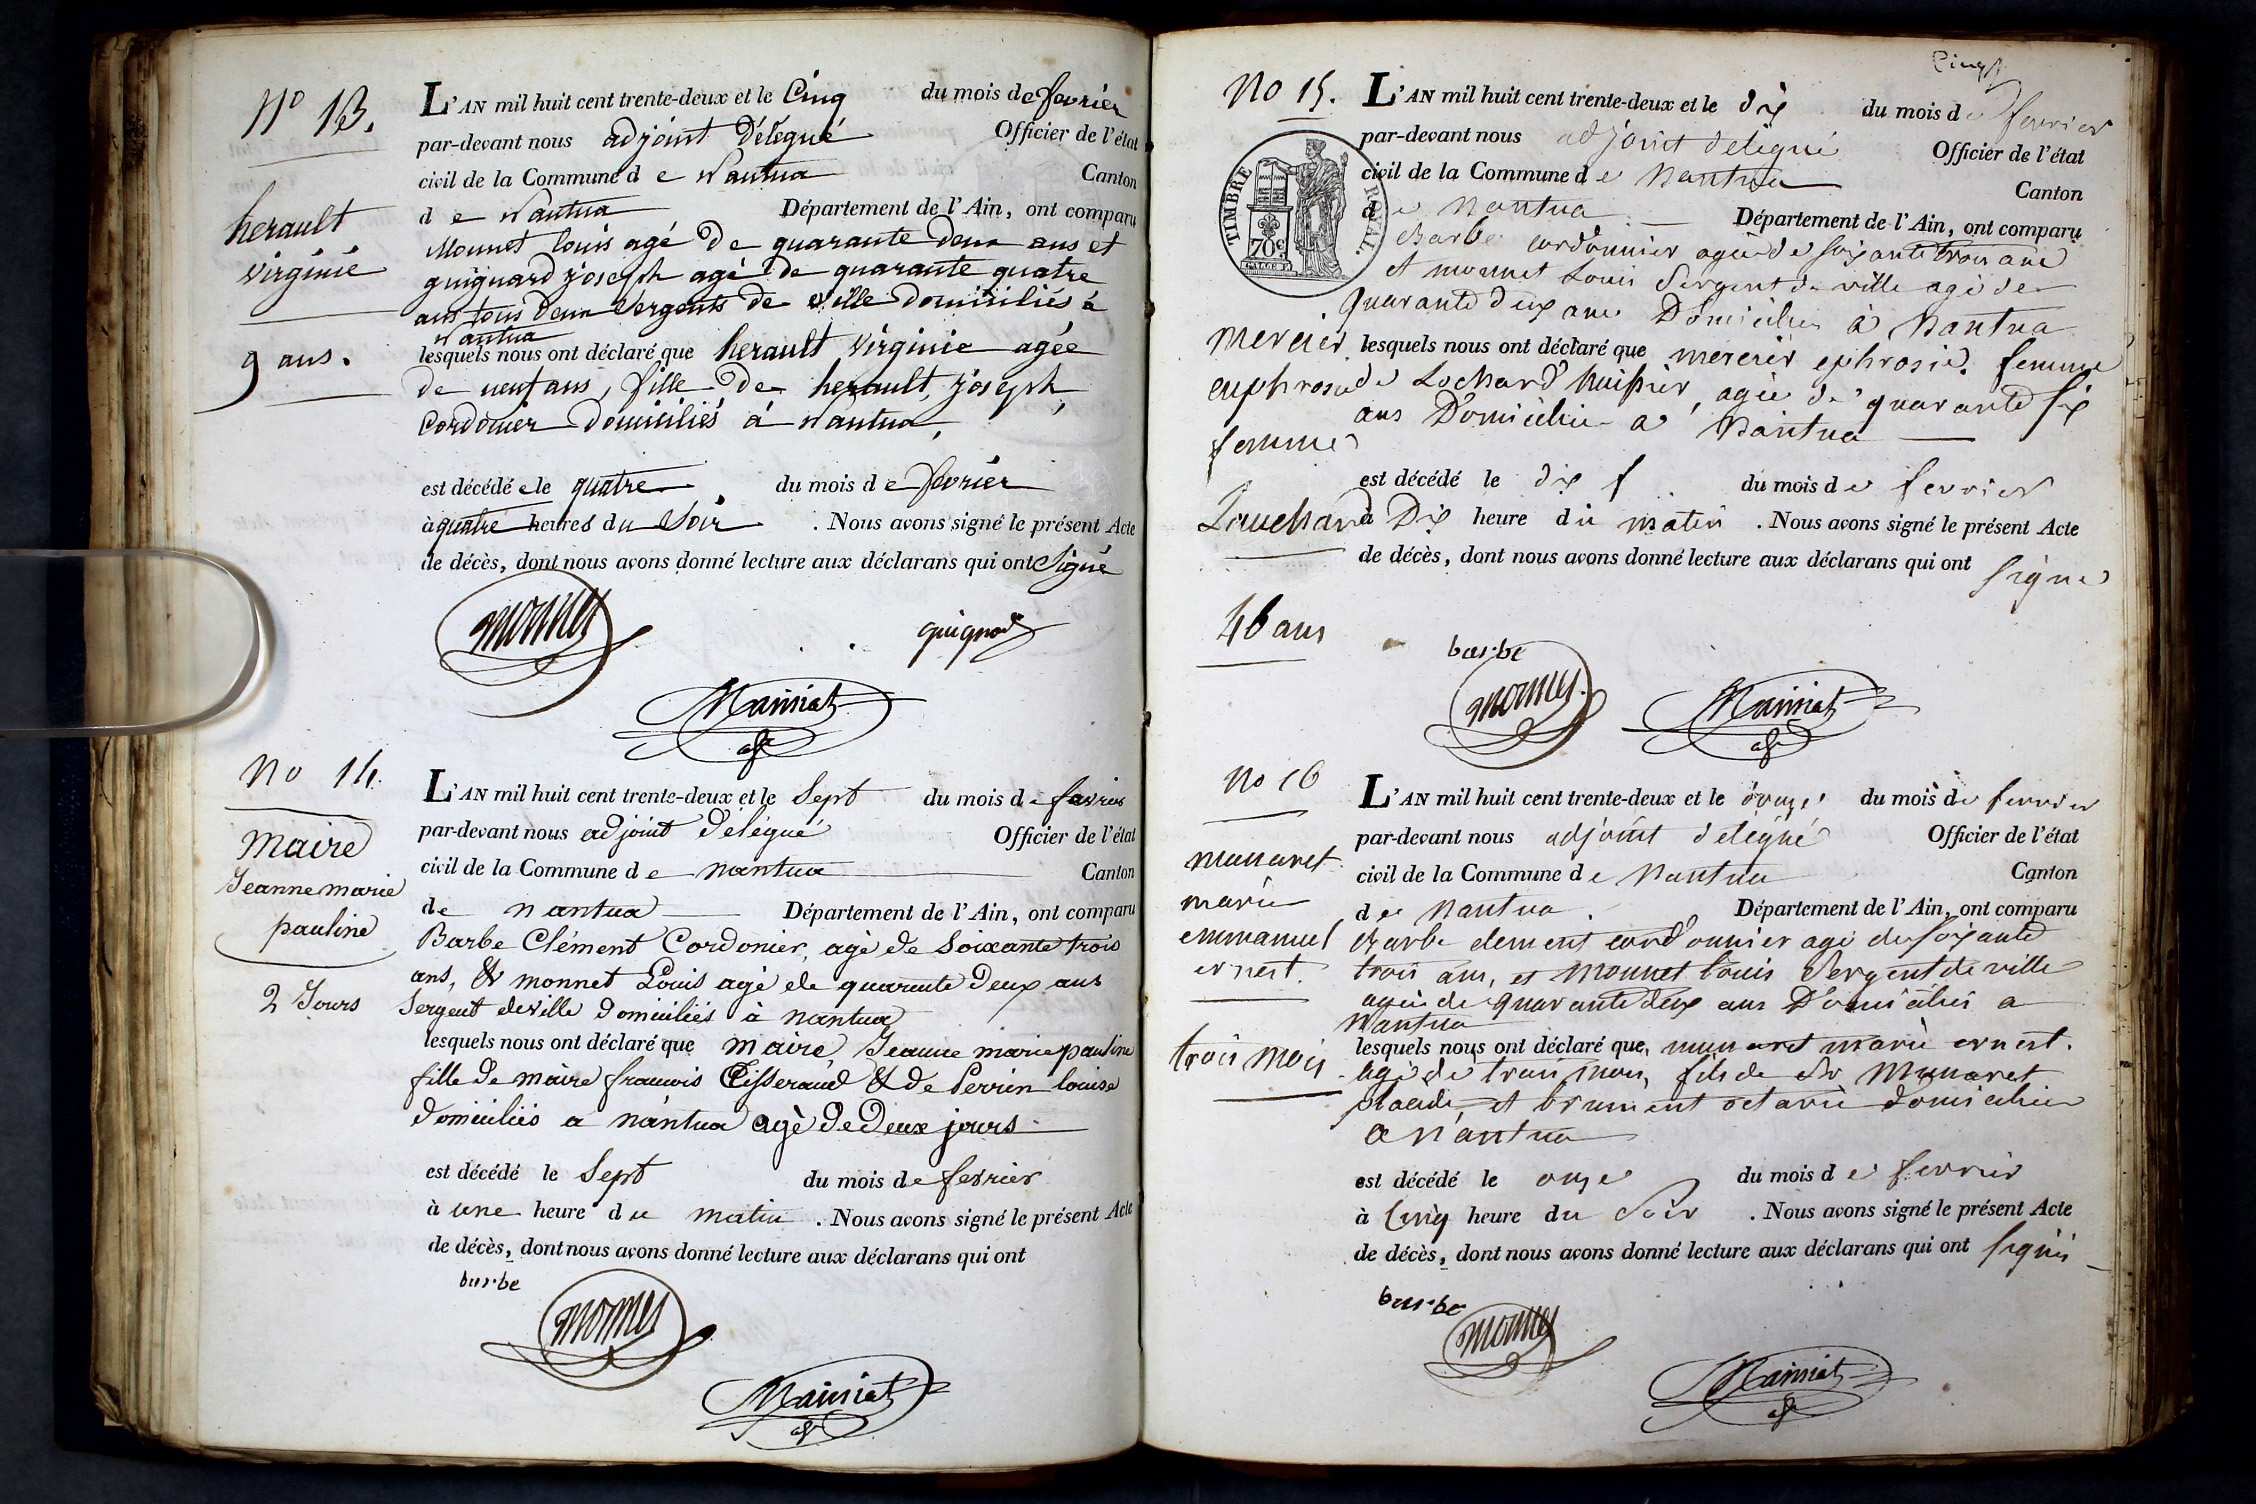 N° 13.
herault
virginie
9 ans.
L'AN mil huit cent trente-deux et le Cinq du mois de fevrier
par-devant nous adjoint Délégué Officier de l'état
civil de la Commune d e Nantua Canton
d e Nantua Département de l'Ain, ont comparu
Monnet louis agé De quarante deux ans et
guignard joseph agé De quarante quatre
ans tous deux Sergents de ville domiciliés à
Nantua
lesquels nous ont déclaré que herault virginie agée
de neuf ans, fille De herault, joseph,
Cordonier domiciliés à Nantua,
est décédé e le quatre du mois d e fevrier
à quatre heures du Soir . Nous avons signé le présent Acte
de décès, dont nous avons donné lecture aux déclarans qui ont Signé
monnet
guignard
Mainiat
No 14.
Maire
Jeanne marie
pauline
2 Jours
L'AN mil huit cent trente-deux et le Sept du mois d e fevrier
par-devant nous adjoint Délégué Officier de l'état
civil de la Commune d e nantua Canton
de nantua Département de l'Ain, ont comparu
Barbe Clément Cordonier, agé de Soixante trois
ans, & monnet Louis agé de quarante Deux ans
Sergent de ville Domiciliés à nantua
lesquels nous ont déclaré que maire Jeanne marie pauline
fille De maire francois Tisseraud & de Perrin louise
Domiciliés a nantua agè De Deux jours
est décédé le Sept du mois d e fevrier
à une heure du matin . Nous avons signé le présent Acte
de décès, dont nous avons donné lecture aux déclarans qui ont
barbe
monnet
Mainiat
Cinq
No 15.
TIMBRE ROYAL.
70c
mercier
euphrosie
femme
Louchard
46 ans
L'AN mil huit cent trente-deux et le dix du mois d e fevrier
par-devant nous adjoint delegué Officier de l'état
civil de la Commune d e Nantua Canton
d e Nantua Département de l'Ain, ont comparu
Barbe cordonnier agé de soixante trois ans
et monnet Louis Sergent de ville agé de
quarante deux ans Domicilies à Nantua
lesquels nous ont déclaré que mercier ephrosie. femme
de Lochard huissier, agée de quarante six
ans Domiciliée a Nantua
est décédé le dix f du mois d e fevrier
à Dix heure du matin . Nous avons signé le présent Acte
de décès, dont nous avons donné lecture aux déclarans qui ont signé
barbe
monnet
Mainiat
No 16
manaret
marie
emmanuel
ernest.
trois mois
L'AN mil huit cent trente-deux et le onze du mois de fevrier
par-devant nous adjoint delegué Officier de l'état
civil de la Commune d e Nantua Canton
d e Nantua. Département de l'Ain, ont comparu
Barbe clement cordonnier agé de soixante
trois ans, et Monnet louis Sergent de ville
agé de quarante deux ans Domicilies a
Nantua
lesquels nous ont déclaré que, munaret marie ernest.
agé de trois mois, fils de Sr Munaret
placide, et brument octavie domicilies
a Nantua
est décédé le onze du mois d e fevrier
à Cinq heure du Soir . Nous avons signé le présent Acte
de décès, dont nous avons donné lecture aux déclarans qui ont signés
barbe
monnet
Mainiat